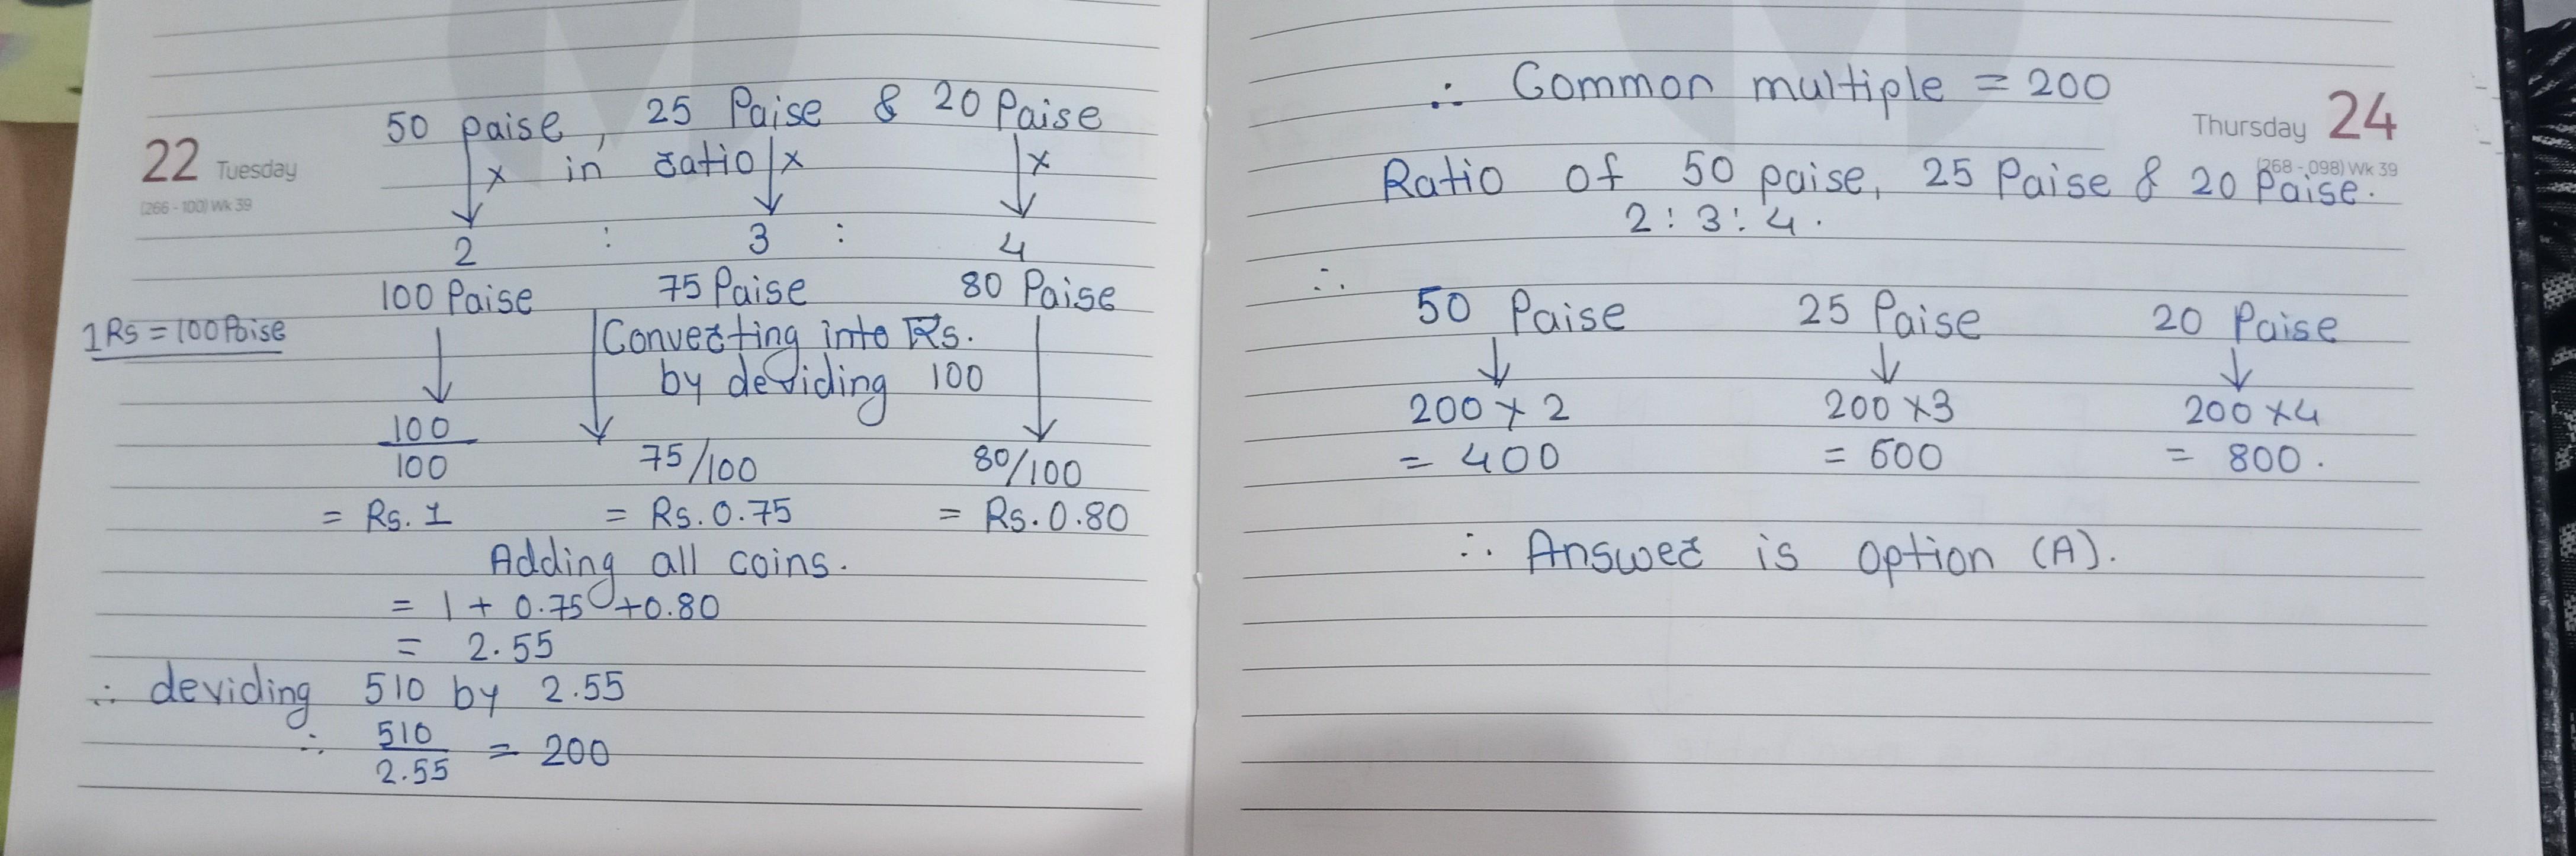 50 paise, 25 Paise & 20 Paise
22 Tuesday
x in ratio x x
(266 - 100) Wk 39
2 : 3 : 4
100 Paise 75 Paise 80 Paise
1 Rs = 100 Paise
Converting into Rs.
by deviding 100
100/100 75/100 80/100
= Rs. 1 = Rs. 0.75 = Rs. 0.80
Adding all coins.
= 1 + 0.75 + 0.80
= 2.55
∴ deviding 510 by 2.55
∴ 510/2.55 = 200
∴ Common multiple = 200
Thursday 24
(268 - 098) Wk 39
Ratio of 50 paise, 25 Paise & 20 Paise.
2 : 3 : 4.
∴
50 Paise 25 Paise 20 Paise
200 x 2 200 x 3 200 x 4
= 400 = 600 = 800.
∴ Answer is option (A).